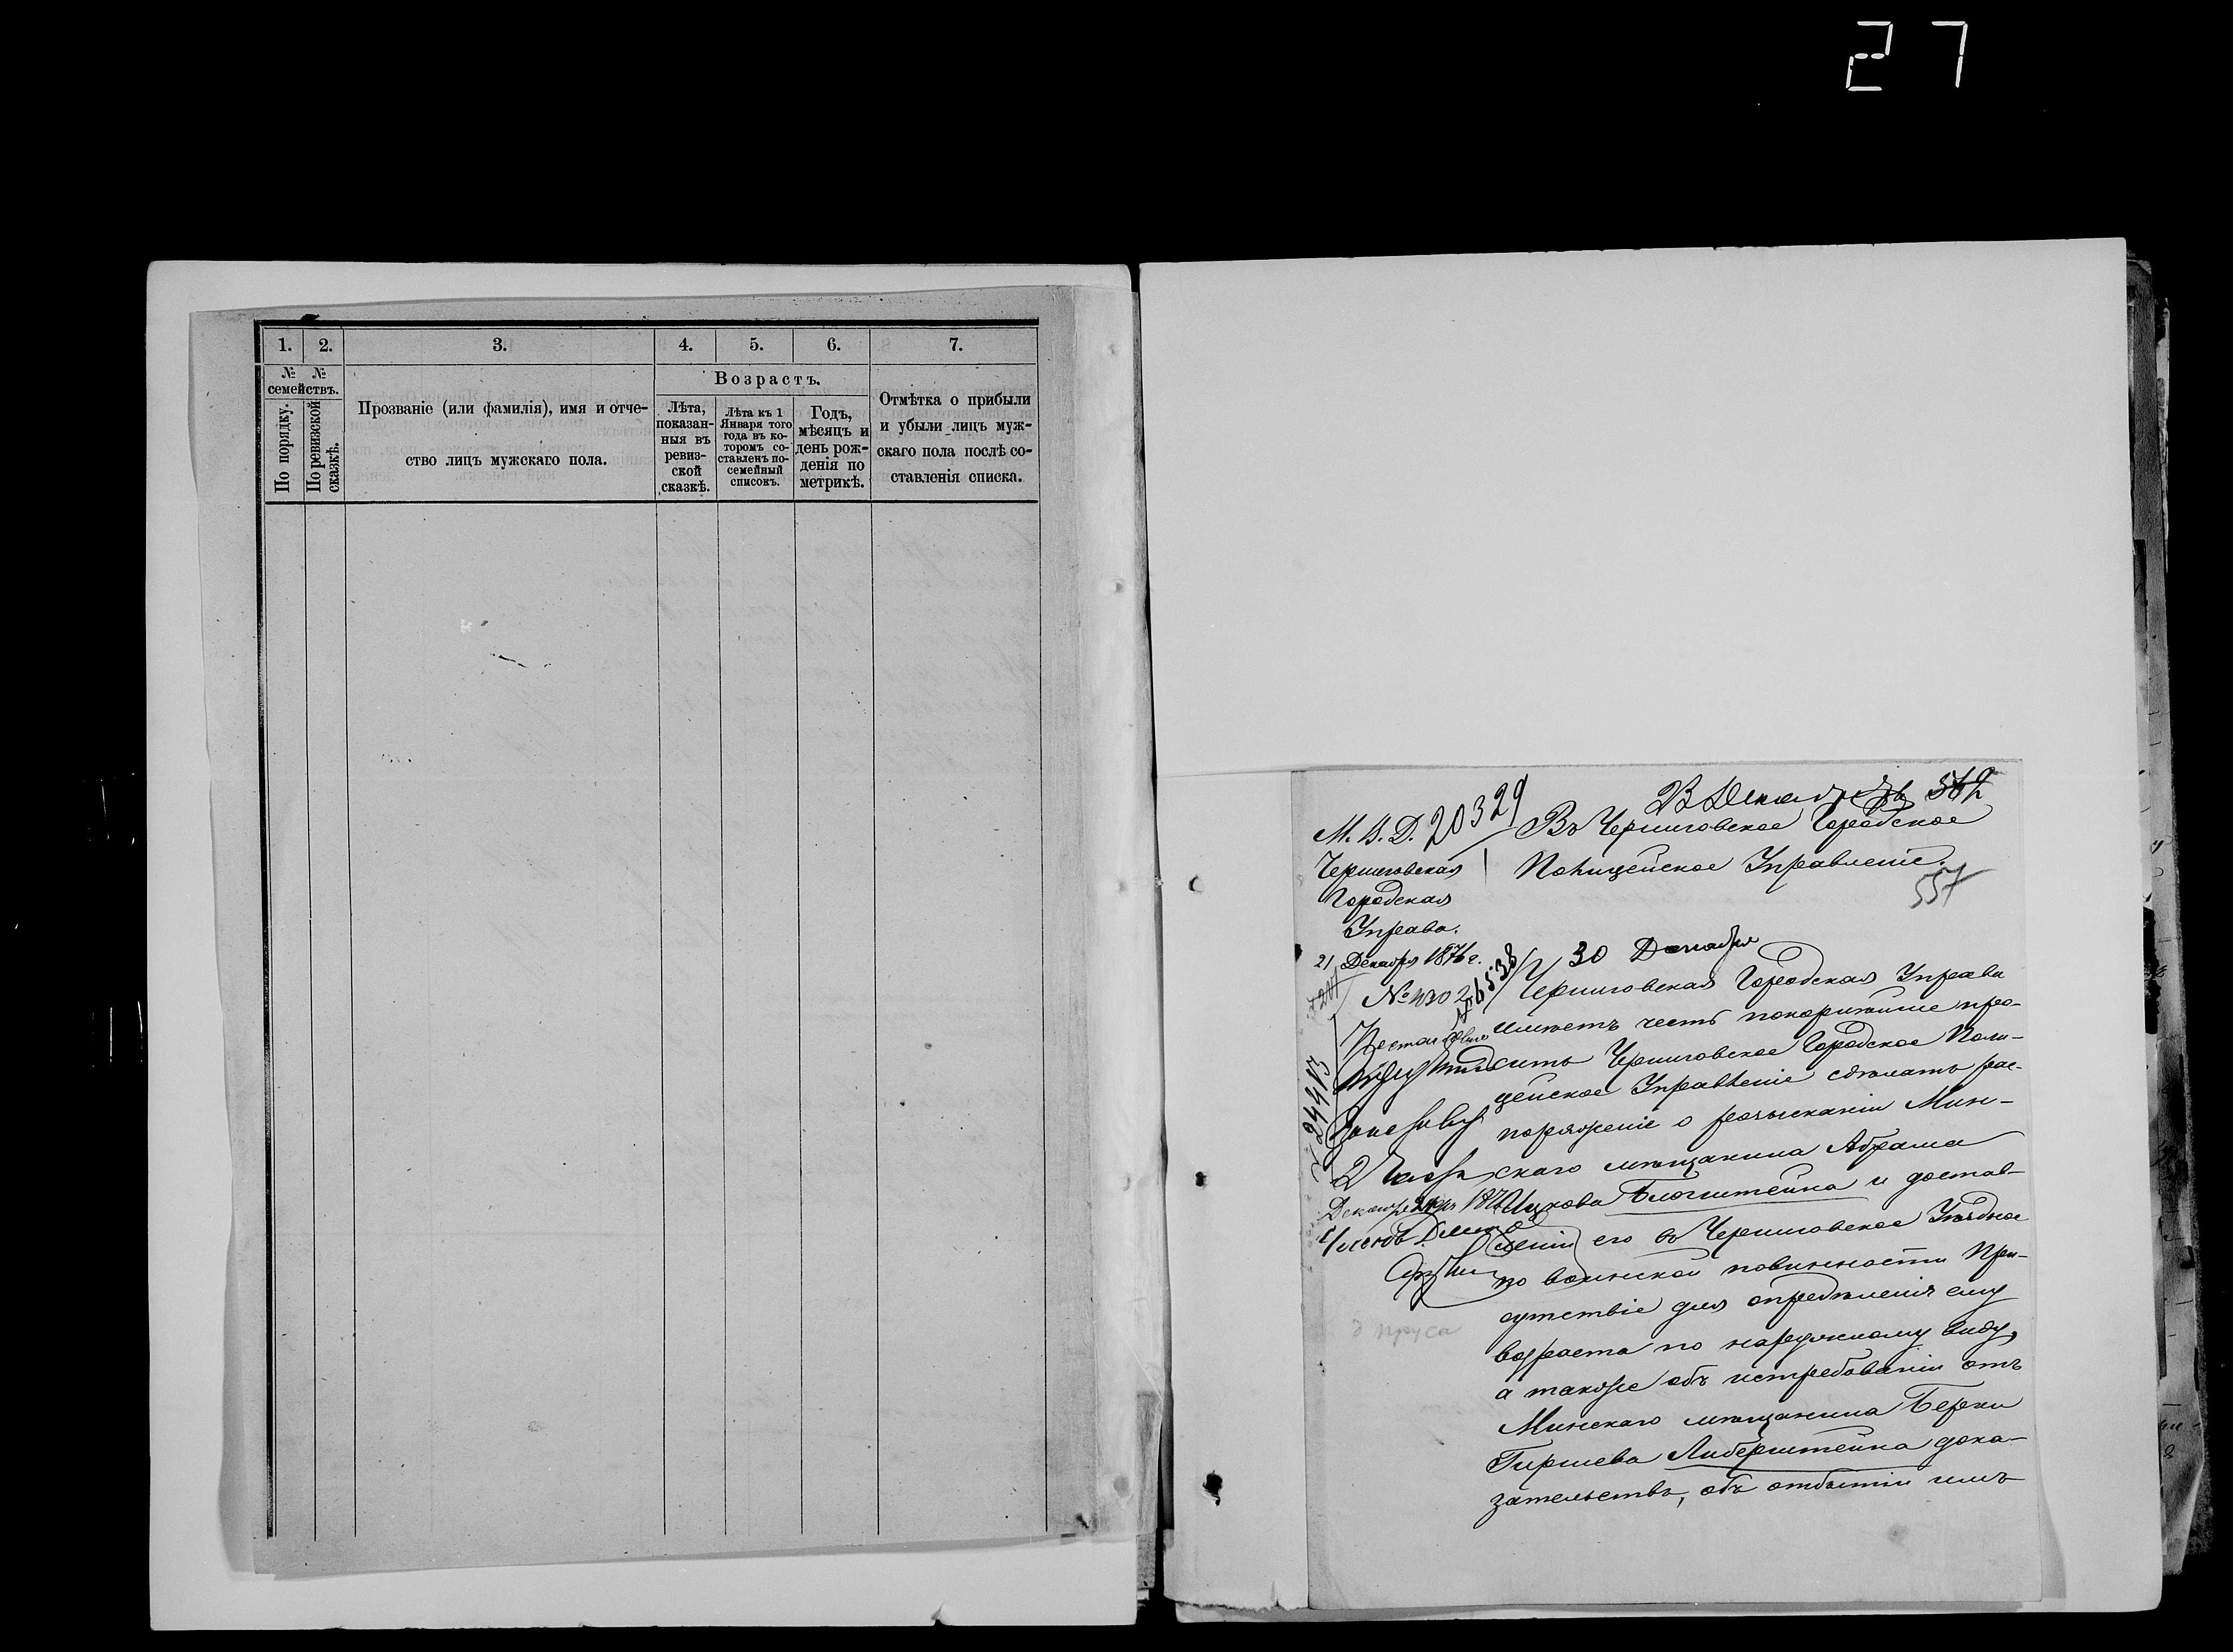 27
1. 2. 3. 4. 5. 6. 7.
№ № семействъ.
По порядку.
По ревизской сказкѣ.
Прозваніе (или фамилія), имя и отче-
ство лицъ мужскаго пола.
Возрастъ.
Лѣта,
показан-
ныя въ
ревиз-
ской
сказкѣ.
Лѣта къ 1
Января того
года въ ко-
торомъ со-
ставленъ по-
семейный
списокъ.
Годъ,
мѣсяцъ и
день рож-
денія по
метрикѣ.
Отмѣтка о прибыли
и убыли лицъ муж-
скаго пола послѣ со-
ставленія списка.
562
М. В. Д. 20329
Черниговская
Городская
Управа.
21 Декабря 1876 г.
№
Въ Черниговское Городское
Полицейское Управленіе.
557
30 Декабря
Черниговская Городская Управа
имѣетъ честь покорнѣйше про-
сить Черниговское Городское Поли-
цейское Управленіе сдѣлать рас-
поряженіе о розысканіи Мин-
скаго мѣщанина Абрама
Ицкова Блогштейна и достав-
леніи его въ Черниговское Уѣздное
по воинской повинности При-
сутствіе для опредѣленія ему
возраста по наружному виду,
а также объ истребованіи отъ
Минскаго мѣщанина Берки
Гиршева Либерштейна дока-
зательствъ, объ отбытіи имъ
2 Части